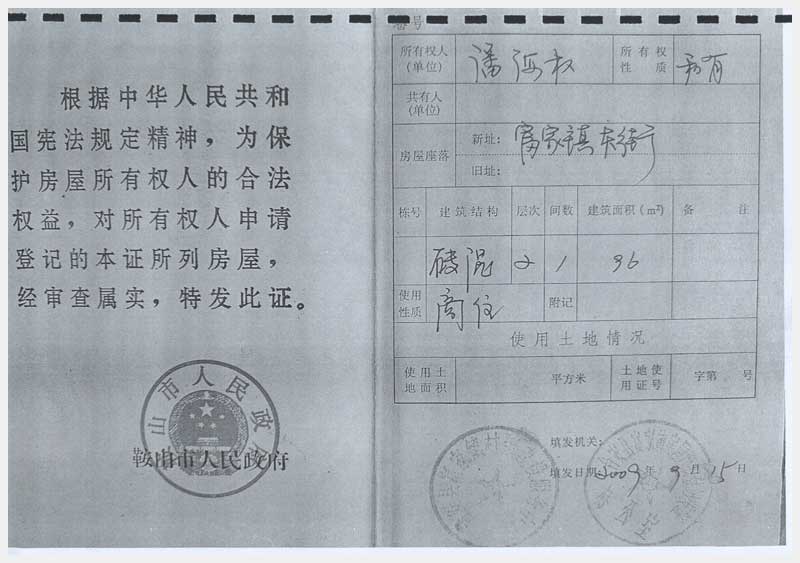 根据中华人民共和
国宪法规定精神，为保
护房屋所有权人的合法
权益，对所有权人申请
登记的本证所列房屋，
经审查属实，特发此证。
山市人民政府
鞍山市人民政府
编号
所有权人
(单位)
潘海权
所有权
性质
私有
共有人
(单位)
房屋座落
新址：
富家镇东街
旧址：
栋号 建筑结构 层次 间数 建筑面积（m²） 备注
砖混 2 1 96
使用
性质
商住
附记
使用土地情况
使用土
地面积
平方米
土地使
用证号
字第 号
填发机关：
填发日期：2009年9月15日